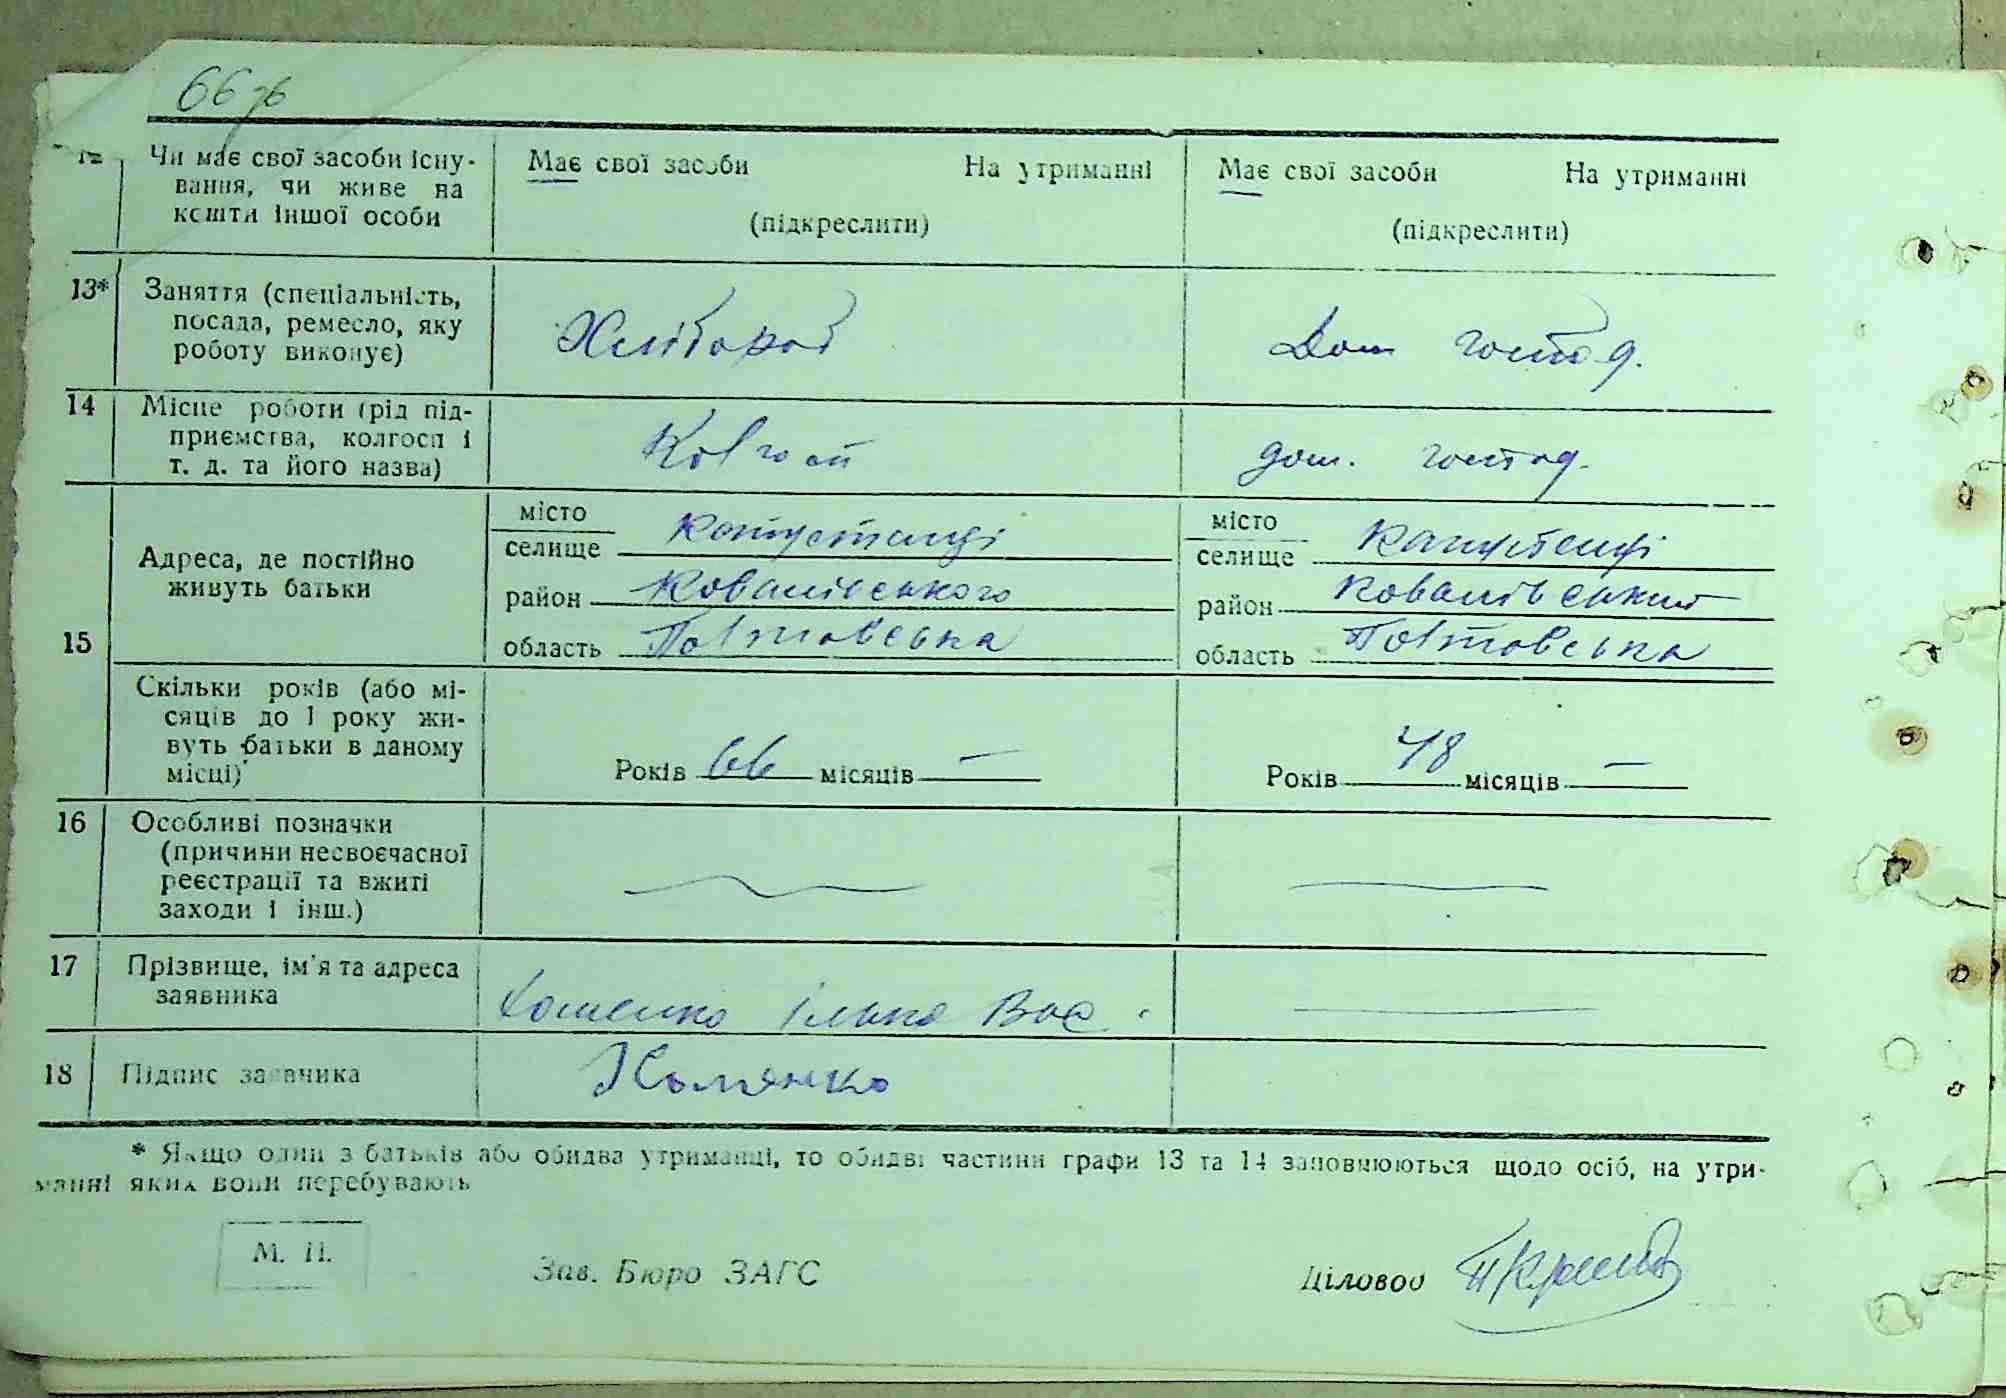 66 зв
12 Чи має свої засоби існу- Має свої засоби На утриманні Має свої засоби На утриманні
вання, чи живе на
кошти іншої особи (підкреслити) (підкреслити)
13* Заняття (спеціальність,
посада, ремесло, яку Хлібороб Дом господ.
роботу виконує)
14 Місце роботи (рід під-
приємства, колгосп і Колгосп дом. господ.
т. д. та його назва)
15 Адреса, де постійно
живуть батьки
місто
селище Капустинці
район Ковалівського
область Полтовська
місто
селище Капустенці
район Ковалівський
область Полтовська
Скільки років (або мі-
сяців до 1 року жи-
вуть батьки в даному
місці) Років 66 місяців — Років 48 місяців —
16 Особливі позначки
(причини несвоєчасної
реєстрації та вжиті — —
заходи і інш.)
17 Прізвище, ім'я та адреса
заявника Хоменко Ілько Вас. —
18 Підпис заявника
* Якщо один з батьків або обидва утриманці, то обидві частини графи 13 та 14 заповнюються щодо осіб, на утри-
манні яких вони перебувають
М. П. Зав. Бюро ЗАГС Діловод